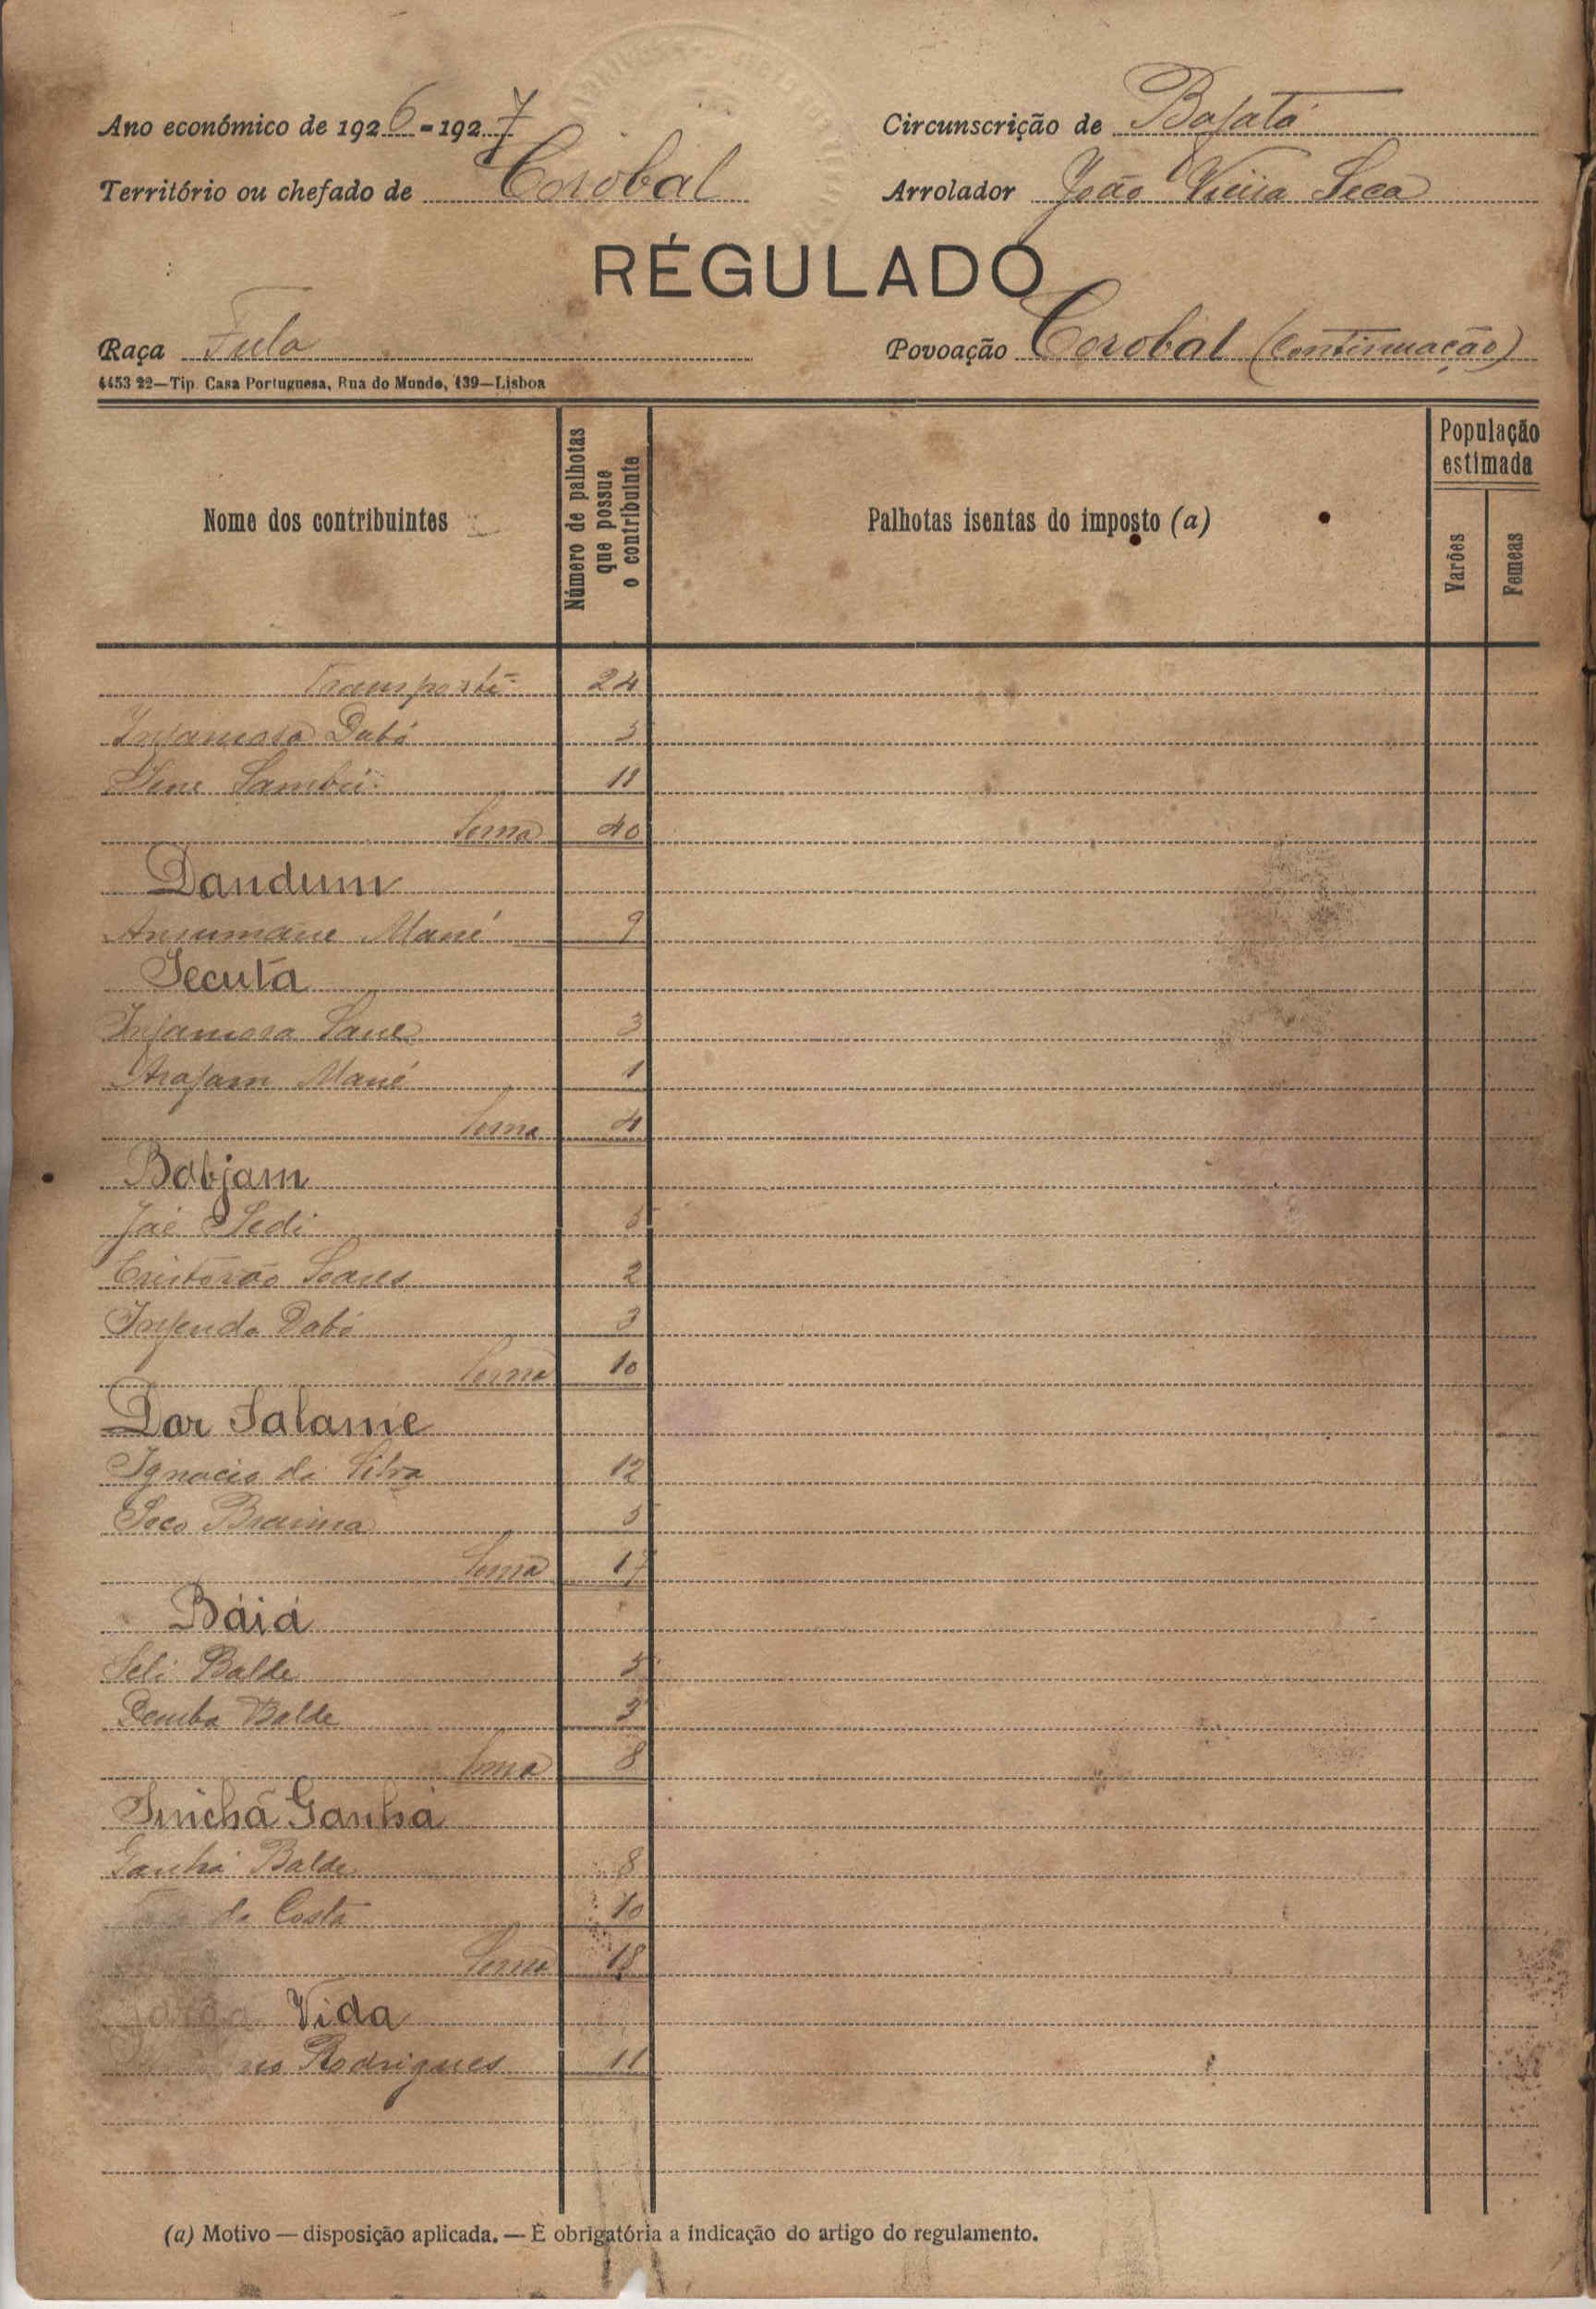 Ano económico de 1926-1927
Circunscrição de Bafatá
Território ou chefado de Corobal
Arrolador João Vieira Seca
RÉGULADO
Raça Fula
Povoação Corobal (Continuação)
4453 22—Tip. Casa Portuguesa, Rua do Mundo, 139—Lisboa
Nome dos contribuintes
Número de palhotas que possue o contribuinte
Palhotas isentas do imposto (a)
População estimada
Varões
Femeas
Transporte 24
Injamosa Dabó 5
Sambú 11
Soma 40
Dandum
Ansumane Mané 9
Secuta
Injamora Sane 3
Arafam Mané 1
Soma 4
Babjam
Jaé Sedi 5
Cristovão Soares 2
Dabó 3
Soma 10
Dar Salame
Ignacio da Silva 12
Soco Braima 5
Soma 17
Báiá
Seli Balde 5
Demba Balde 3
Soma 8
Sinchã Ganhá
Ganhá Balde 8
da Costa 10
Soma 18
Vida
Rodrigues 11
(a) Motivo — disposição aplicada. — É obrigatória a indicação do artigo do regulamento.